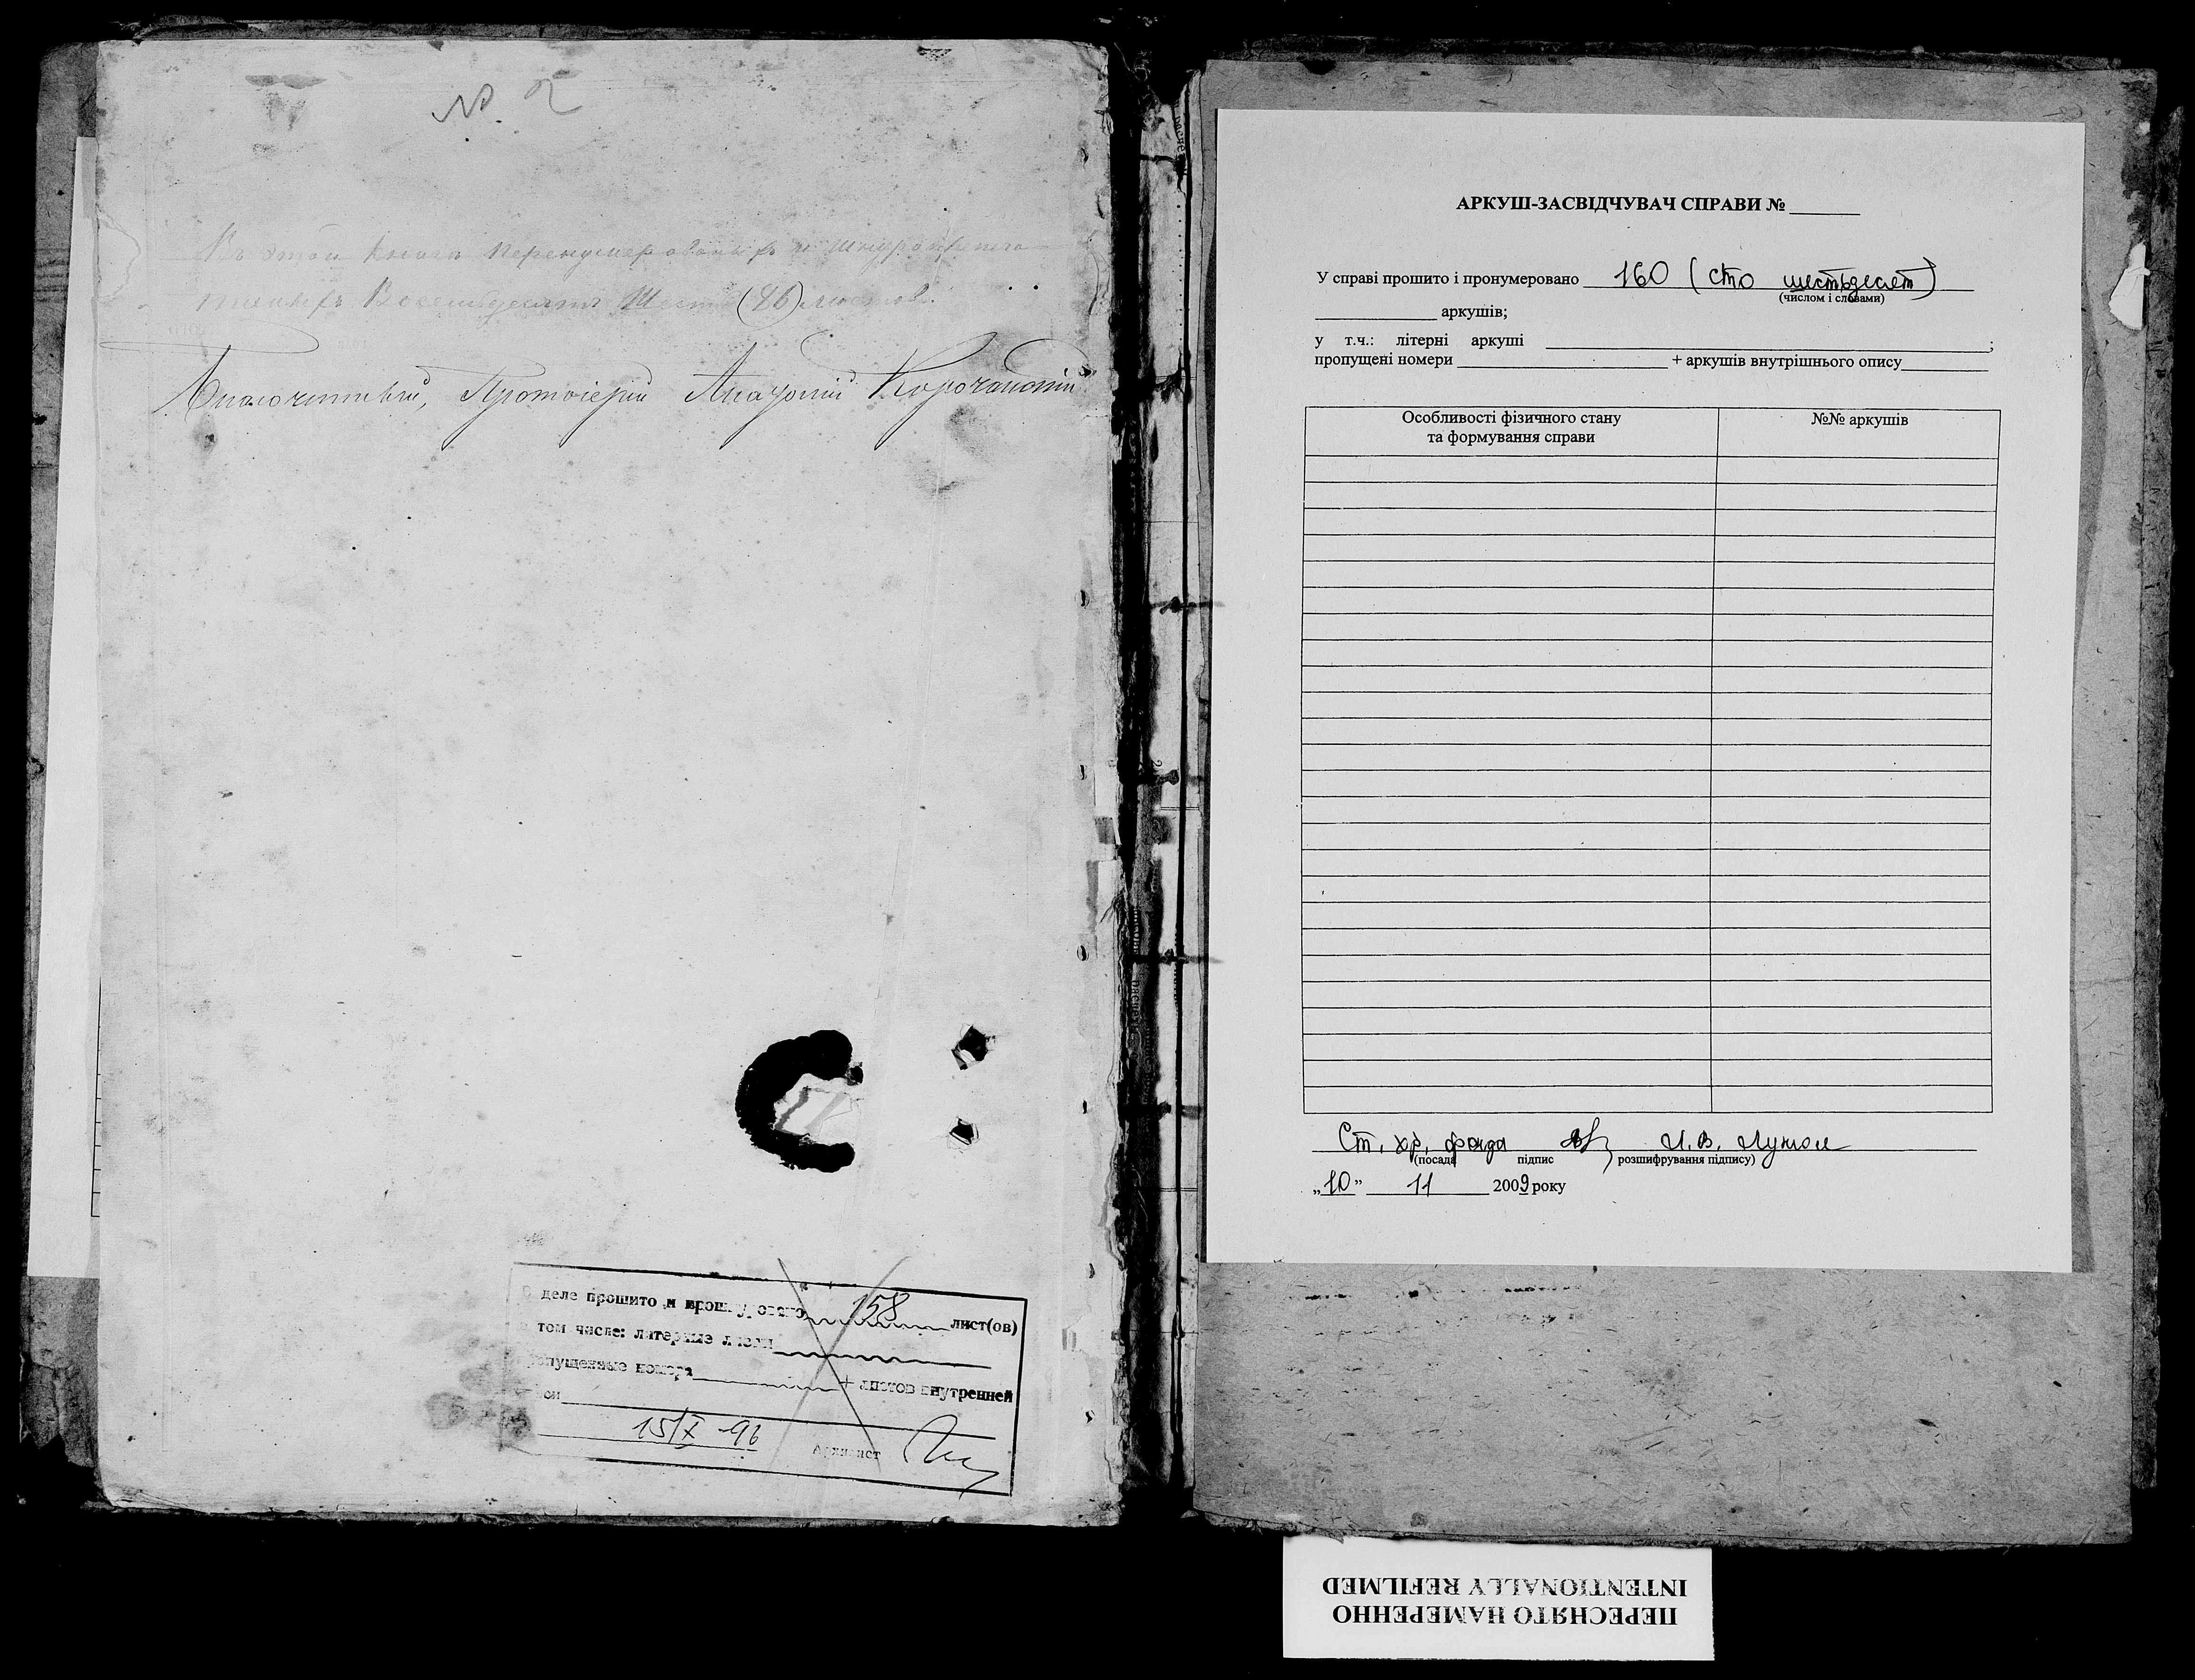 № 2
Въ этой книгѣ перенумерованныхъ и шнуромъ
Восемьдесятъ Шесть (86) листовъ.
Благочинный, Протоіерей Анатолій Корочанскій
В деле прошито и пронумеровано 158 лист(ов)
в том числе: литерные листы
пропущенные номера + листов внутренней
описи
15/X-96 Архивист
АРКУШ-ЗАСВІДЧУВАЧ СПРАВИ №
У справі прошито і пронумеровано 160 (сто шестьдесят)
(числом і словами)
аркушів;
у т.ч.: літерні аркуші ;
пропущені номери + аркушів внутрішнього опису
Особливості фізичного стану
та формування справи
№№ аркушів
Ст. хр. фонда И.В.
(посада підпис розшифрування підпису)
„10” 11 2009 року
ПЕРЕСНЯТО НАМЕРЕННО
INTENTIONALLY REFILMED